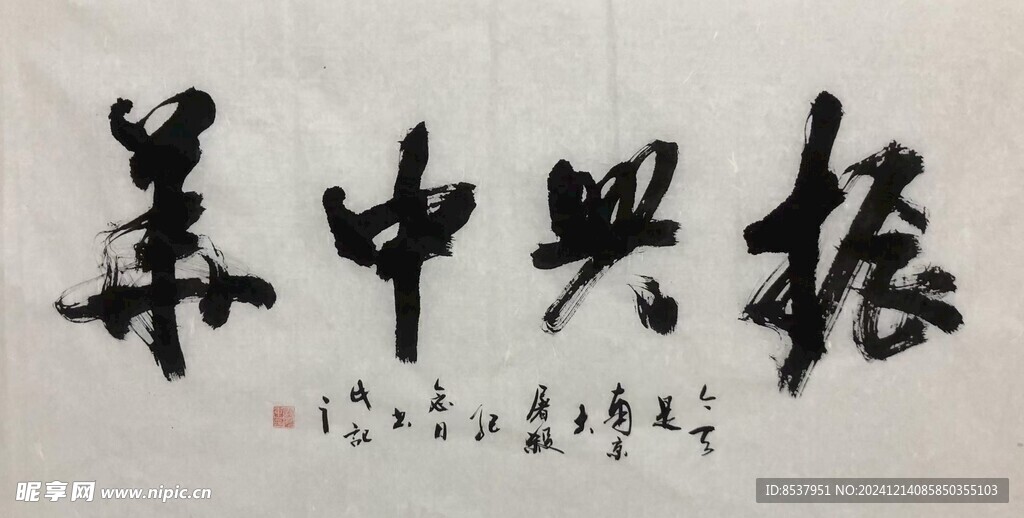 振興中華
今天
是
南京
大
屠殺
紀
念日
書
以記
昵享网 www.nipic.cn
ID:8537951 NO:20241214085850355103